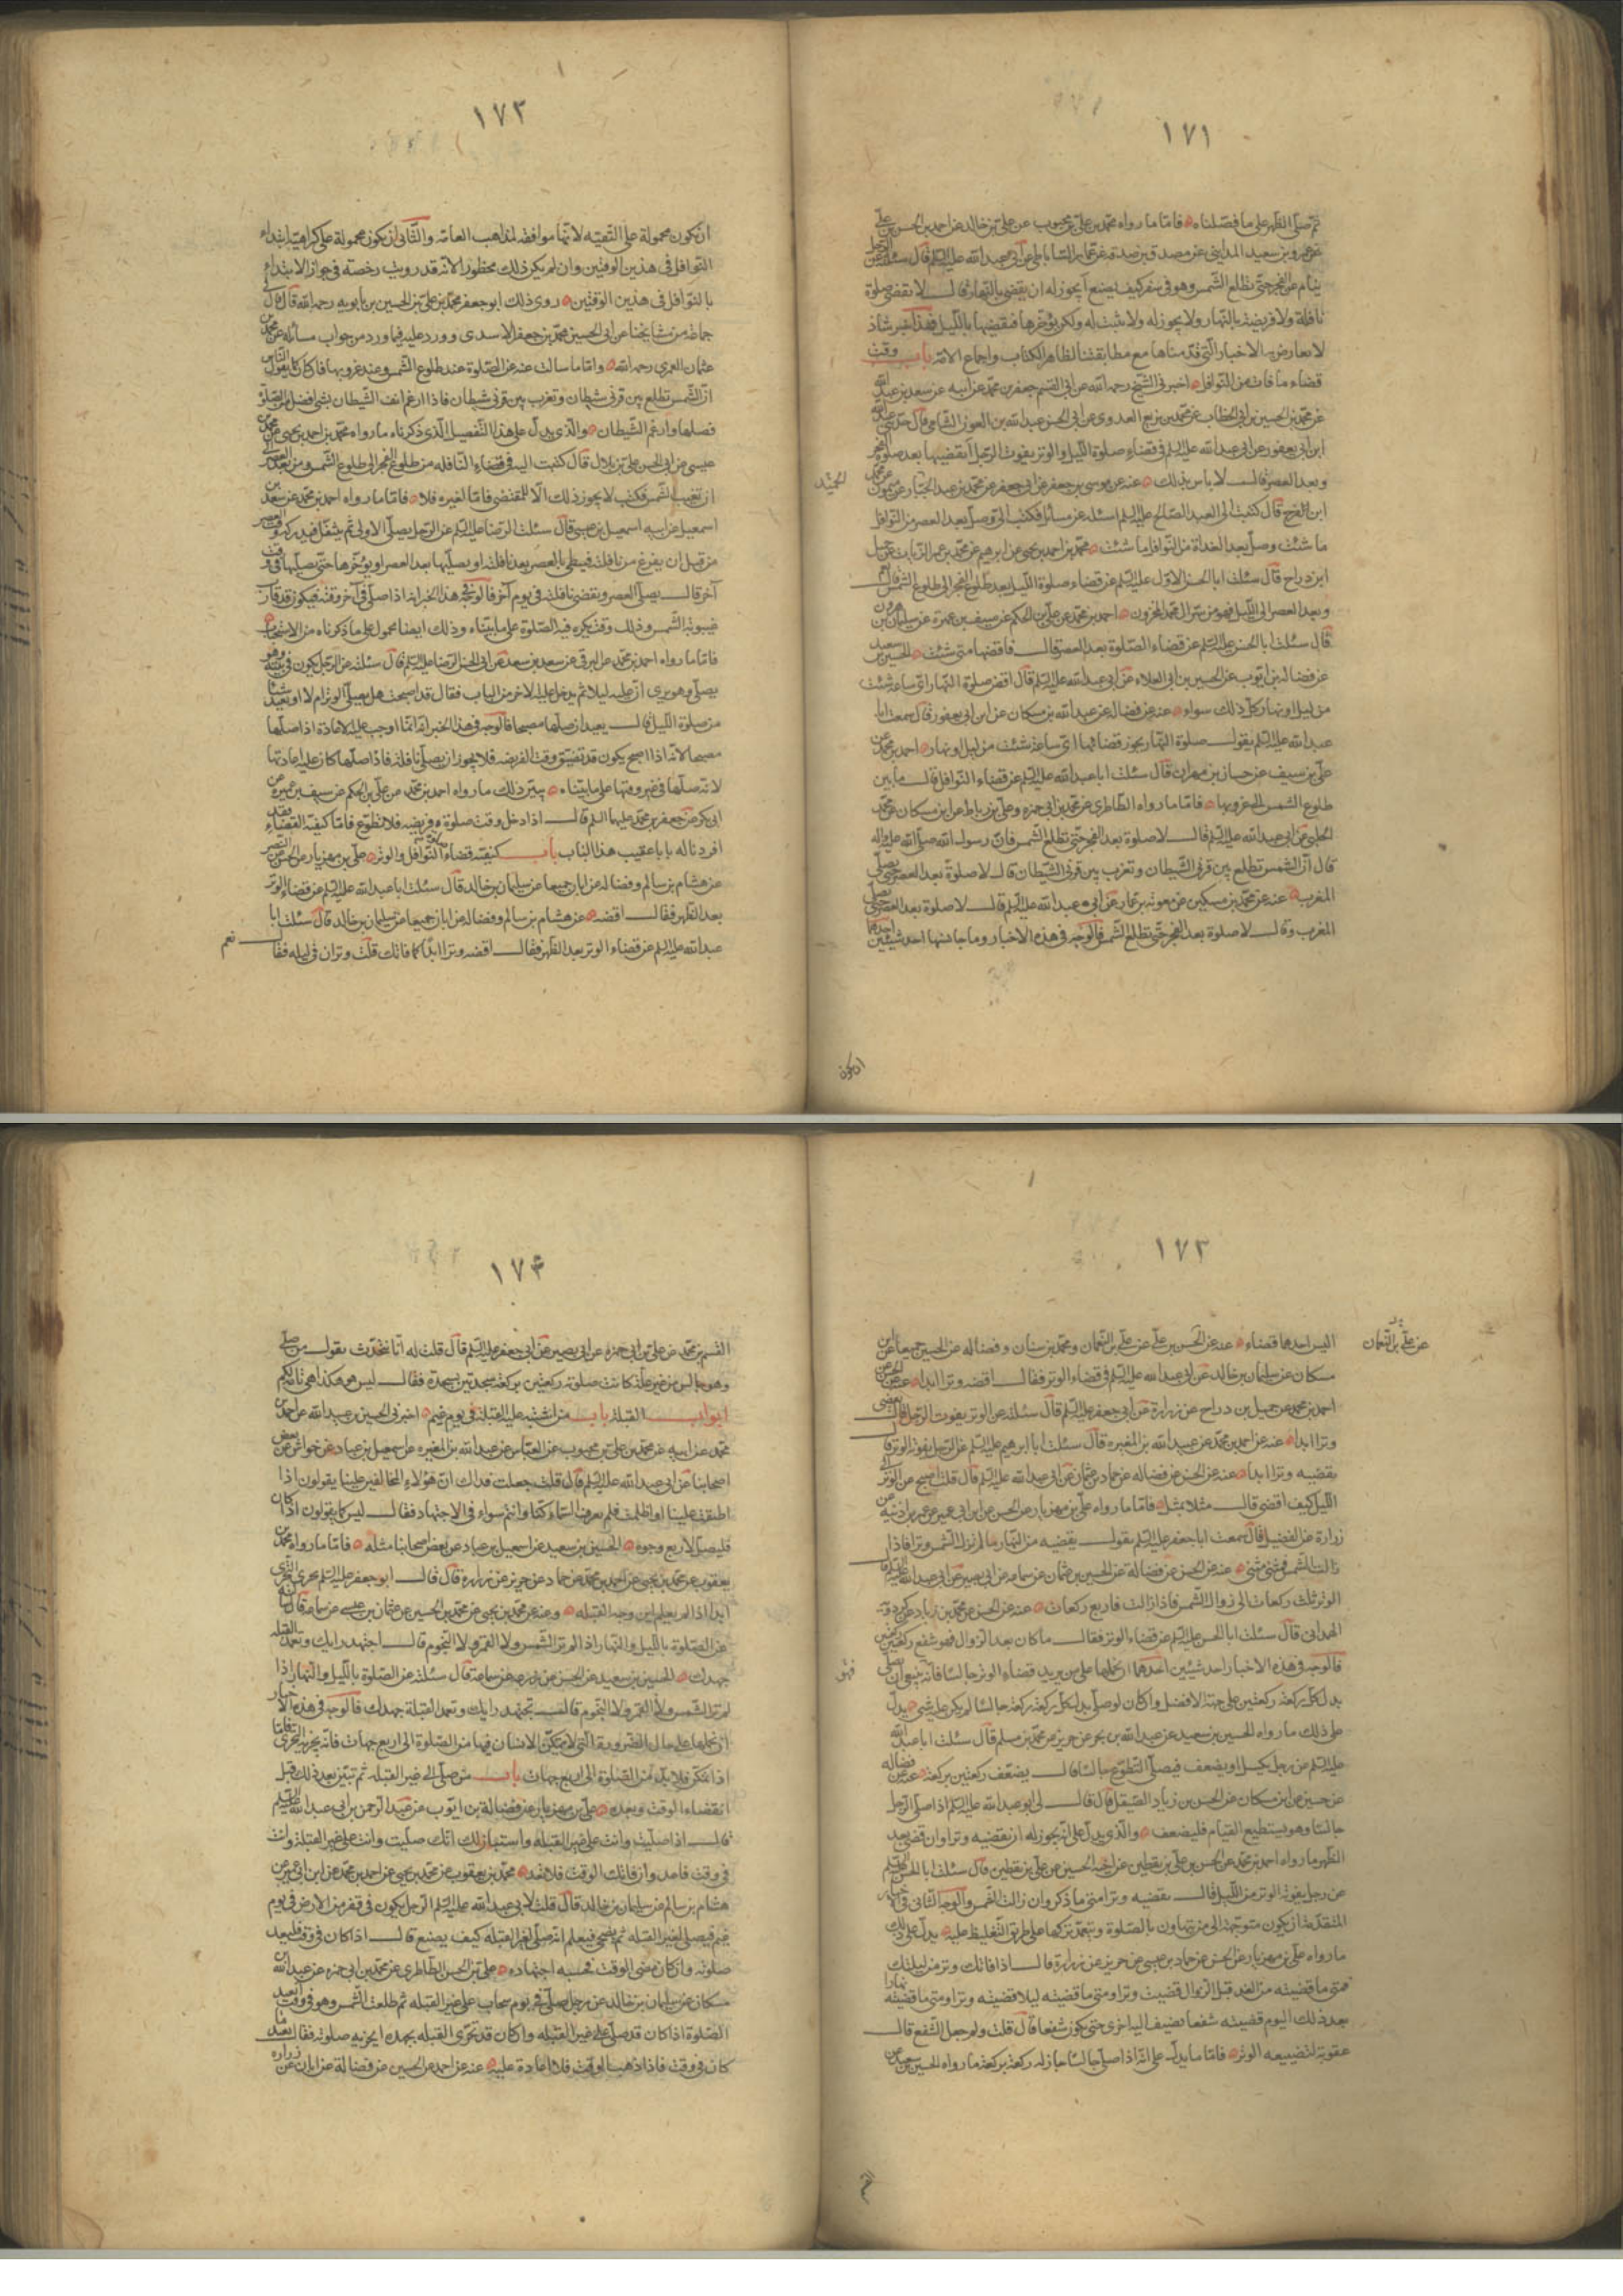 ١٧١
ثم تصلى الظهر على ما فصلناه فاما ما رواه محمد بن على بن محبوب عن على بن خالد عن احمد بن الحسن بن على
عن عمرو بن سعيد المداينى عن مصدق بن صدقة عن عمار الساباطى عن ابى عبد الله عليه السلم قال سئلته عن الرجل
ينام عن الفجر حتى تطلع الشمس وهو فى سفر كيف يصنع أيجوز له ان يقضى بالنهار قال لا يقضى صلوة
نافلة ولا فريضة بالنهار ولا يجوز له ولا يثبت له ولكن يؤخرها فيقضيها بالليل فهذا خبر شاذ
لا يعارض به الاخبار التى قدمناها مع مطابقتها لظاهر الكتاب واجماع الامة باب وقت
قضاء ما فات من النوافل اخبرنى الشيخ رحمه الله عن ابى القسم جعفر بن محمد عن ابيه عن سعد بن عبد الله
عن محمد بن الحسين بن ابى الخطاب عن محمد بن بزيع العدوى عن ابى الحسن عبد الله بن العون الشامى قال حدثنى عبد الله
ابن ابى يعفور عن ابى عبد الله عليه السلم فى قضاء صلوة الليل والوتر يفوت الرجل أيقضيها بعد صلوة الفجر
وبعد العصر قال لا باس بذلك عنه عن موسى بن جعفر عن ابى جعفر عن محمد بن عبد الجبار عن ميمون عن محمد
ابن الفرج قال كتبت الى العبد الصالح عليه السلم اسئله عن مسائل فكتب الى وصل بعد العصر من النوافل
ما شئت وصل بعد الغداة من النوافل ما شئت محمد بن احمد بن يحيى عن ابرهيم عن محمد بن عمر الزيات عن جميل
ابن دراج قال سئلت ابا الحسن الاول عليه السلم عن قضاء صلوة الليل بعد طلوع الفجر الى طلوع الشمس قال نعم
وبعد العصر الى الليل فهو من سر ال محمد المخزون احمد بن محمد عن على بن الحكم عن سيف بن عميرة عن سليمان بن هرون
قال سئلت ابا الحسن عليه السلم عن قضاء الصلوة بعد العصر قال فاقضها متى شئت الحسين بن سعيد
عن فضالة بن ايوب عن الحسين بن ابى العلاء عن ابى عبد الله عليه السلم قال اقض صلوة النهار اى ساعة شئت
من ليل او نهار كل ذلك سواء عنه عن فضالة عن عبد الله بن مسكان عن ابن ابى يعفور قال سمعت ابا
عبد الله عليه السلم يقول صلوة النهار يجوز قضائها اى ساعة شئت من ليل او نهار احمد بن محمد عن
على بن سيف عن حسان بن مهران قال سئلت ابا عبد الله عليه السلم عن قضاء النوافل قال ما بين
طلوع الشمس الى غروبها فاما ما رواه الطاطرى عن محمد بن ابى حمزة وعلى بن رباط عن ابن مسكان عن محمد
الحلبى عن ابى عبد الله عليه السلم قال لا صلوة بعد الفجر حتى تطلع الشمس فان رسول الله صلى الله عليه واله
قال ان الشمس تطلع بين قرنى الشيطان وتغرب بين قرنى الشيطان قال لا صلوة بعد العصر حتى يصلى
المغرب عنه عن محمد بن مسكين عن معوية بن عمار عن ابى عبد الله عليه السلم قال لا صلوة بعد العصر حتى يصلى
المغرب وقال لا صلوة بعد الفجر حتى تطلع الشمس فالوجه فى هذه الاخبار وما جانسها احد شيئين احدهما
ان تكون
١٧٢
ان تكون محمولة على التقيه لانها موافقه لمذاهب العامة والثانى ان يكون محمولة على كراهية ابتداء
النوافل فى هذين الوقتين وان لم يكن ذلك محظورا لانه قد رويت رخصة فى جواز الابتداء
بالنوافل فى هذين الوقتين روى ذلك ابو جعفر محمد بن على بن الحسين بن بابويه رحمه الله قال قال لى
جماعة من مشايخنا عن ابى الحسين محمد بن جعفر الاسدى وورد عليه فيما ورد من جواب مسائله عن محمد بن
عثمان العمرى رحمه الله واما ما سالت عنه عن الصلوة عند طلوع الشمس وعند غروبها فلان كان كما يقول الناس
ان الشمس تطلع بين قرنى شيطان وتغرب بين قرنى شيطان فاذا ارغم انف الشيطان بشئ افضل من الصلوة
فصلها وارغم الشيطان والذى يدل على هذا التفصيل الذى ذكرناه ما رواه محمد بن احمد بن يحيى عن محمد بن
عيسى عن ابى الحسن على بن بلال قال كتبت اليه فى قضاء النافله من طلوع الفجر الى طلوع الشمس ومن بعد العصر الى
ان تغيب الشمس فكتب لا يجوز ذلك الا للمقتضى فاما لغيره فلا فاما ما رواه احمد بن محمد عن سعد بن
اسمعيل عن ابيه اسمعيل بن عيسى قال سئلت الرضا عليه السلم عن الرجل يصلى الاولى ثم يتنفل فيدركه وقت العصر
من قبل ان يفرغ من نافلته فيبطى بالعصر بعد نافلته او يصليها بعد العصر او يؤخرها حتى يصليها فى وقت
آخر قال يصلى العصر ويقضى نافلته فى يوم آخر فالوجه فى هذا الخبر انه اذا صلى فى آخر وقته فيكون قد قارب
غيبوبة الشمس وذلك وقت يكره فيه الصلوة على ما بيناه وذلك ايضا محمول على ما ذكرناه من الاستحباب
فاما ما رواه احمد بن محمد عن البرقى عن سعد بن سعد عن ابى الحسن الرضا عليه السلم قال سئلته عن الرجل يكون فى بيته وهو
يصلى وهو يرى ان عليه ليلا ثم يدخل عليه الاخر من الباب فقال قد اصبحت هل يصلى الوتر ام لا او يعيد شيئا
من صلوة الليل قال يعيد ان صلها مصبحا فالوجه فى هذا الخبر انه انما اوجب عليه الاعادة اذا صلها
مصبحا لانه اذا اصبح يكون قد تضيق وقت الفريضه فلا يجوز ان يصلى نافلة فاذا صلها كان عليه اعادتها
لانه صلها فى غير وقتها على ما بيناه يبين ذلك ما رواه احمد بن محمد عن على بن الحكم عن سيف بن عميرة عن
ابى بكر عن جعفر بن محمد عليهما السلم قال اذا دخل وقت صلوة فريضه فلا تطوع فاما كيفية القضاء فقد
افردنا له بابا عقيب هذا الباب باب كيفية قضاء صلوة النوافل والوتر على بن مهزيار عن الحسن عن النضر
عن هشام بن سالم وفضاله عن ابان جميعا عن سليمان بن خالد قال سئلت ابا عبد الله عليه السلم عن قضاء الوتر
بعد الظهر فقال اقضه عن هشام بن سالم وفضاله عن ابان جميعا عن سليمان بن خالد قال سئلت ابا
عبد الله عليه السلم عن قضاء الوتر بعد الظهر فقال اقضه وترا ابدا كما فاتك قلت وتران فى ليله فقال نعم
١٧٣
اليس احدهما قضاء عنه عن الحسن بن على عن على بن النعمان ومحمد بن سنان وفضاله عن الحسين جميعا عن ابن
عن على بن النعمان
مسكان عن سليمان بن خالد عن ابى عبد الله عليه السلم فى قضاء الوتر فقال اقضه وترا ابدا عنه عن الحسن عن
احمد بن محمد عن جميل بن دراج عن زرارة عن ابى جعفر عليه السلم قال سئلته عن الوتر يفوت الرجل قال يقضى
وترا ابدا عنه عن احمد بن محمد عن عبد الله بن المغيره قال سئلت ابا ابرهيم عليه السلم عن الرجل يفوته الوتر قال
يقضيه وترا ابدا عنه عن الحسن عن فضاله عن حماد بن عثمان عن ابى عبد الله عليه السلم قال قلت اصبح عن الوتر الى
الليل كيف اقضى قال مثلا بمثل فاما ما رواه على بن مهزيار عن الحسن عن ابن ابى عمير عن عمر بن اذينه عن
زرارة عن الفضيل قال سمعت ابا جعفر عليه السلم يقول يقضيه من النهار ما لم تزل الشمس وترا فاذا
زالت الشمس فمثنى مثنى عنه عن الحسن عن فضالة عن الحسين بن عثمان عن سماعه عن ابى بصير عن ابى عبد الله عليه السلم قال
الوتر ثلث ركعات الى زوال الشمس فاذا زالت فاربع ركعات عنه عن الحسن عن محمد بن زياد عن كردويه
الهمدانى قال سئلت ابا الحسن عليه السلم عن قضاء الوتر فقال ما كان بعد الزوال فهو شفع ركعتين ركعتين
فالوجه فى هذه الاخبار احد شيئين احدهما ان نحملها على من يريد قضاء الوتر جالسا فانه ينبغى ان يصلى
بدل كل ركعة ركعتين على جهة الافضل وان كان لو صلى بدل كل ركعة ركعة جالسا لم يكن عليه شئ يدل
على ذلك ما رواه الحسين بن سعيد عن عبد الله بن بحر عن حريز عن محمد بن مسلم قال سئلت ابا عبد الله
عليه السلم عن رجل يكسل او يضعف فيصلى التطوع جالسا قال يضعف ركعتين بركعة عنه عن فضاله
عن حسين عن ابن مسكان عن الحسن بن زياد الصيقل قال قال لى ابو عبد الله عليه السلم اذا صلى الرجل
جالسا وهو يستطيع القيام فليضعف والذى يدل على انه يجوز له ان يقضيه وترا وان قضى بعد
الظهر ما رواه احمد بن محمد عن الحسن بن على بن يقطين عن اخيه الحسين عن على بن يقطين قال سئلت ابا الحسن عليه السلم
عن رجل يفوته الوتر من الليل قال يقضيه وترا متى ما ذكر وان زالت الشمس والوجه الثانى فى الاخبار
المتقدمة ان يكون متوجهة الى من يتهاون بالصلوة ويتعمد تركها على طريق التغليظ عليه يدل على ذلك
ما رواه على بن مهزيار عن الحسن عن حماد بن عيسى عن حريز عن زرارة قال اذا فاتك وتر من ليلتك
فمتى ما قضيته من الغد قبل الزوال قضيت وترا ومتى ما قضيته ليلا قضيته وترا ومتى ما قضيته نهارا
بعد ذلك اليوم قضيته شفعا تضيف اليه اخرى حتى يكون شفعا قال قلت ولم جعل الشفع قال
عقوبة لتضييعه الوتر فاما ما يدل على انه اذا صلى جالسا جاز له ركعة بركعة ما رواه الحسين بن سعيد عن
القسم
١٧٤
القسم بن محمد عن على بن ابى حمزه عن ابى بصير عن ابى جعفر عليه السلم قال قلت له انا نتحدث نقول من صلى
وهو جالس من غير علة كانت صلوته ركعتين بركعة وسجدتين بسجدة فقال ليس هو هكذا هى تامة لكم
ابواب القبلة باب من اشتبه عليه القبلة فى يوم غيم اخبرنى الحسين بن عبيد الله عن احمد بن
محمد عن ابيه عن محمد بن على بن محبوب عن العباس عن عبد الله بن المغيره عن اسمعيل بن عباد عن خراش عن بعض
اصحابنا عن ابى عبد الله عليه السلم قال قلت جعلت فداك ان هؤلاء المخالفين علينا يقولون اذا
اطبقت علينا او اظلمت فلم نعرف السماء كنا وانتم سواء فى الاجتهاد فقال ليس كما يقولون اذا كان
فليصل لاربع وجوه الحسين بن سعيد عن اسمعيل بن عباد عن بعض اصحابنا مثله فاما ما رواه محمد بن
يعقوب عن محمد بن يحيى عن احمد بن محمد عن حماد عن حريز عن زرارة قال قال ابو جعفر عليه السلم يجزى التحرى
ابدا اذا لم يعلم اين وجه القبله وعنه عن محمد بن يحيى عن محمد بن الحسين عن عثمان بن عيسى عن سماعة قال سئلته
عن الصلوة بالليل والنهار اذا لم تر الشمس ولا القمر ولا النجوم قال اجتهد رايك وتعمد القبله
جهدك الحسين بن سعيد عن الحسن عن زرعه عن سماعة قال سئلته عن الصلوة بالليل والنهار اذا
لم تر الشمس ولا القمر ولا النجوم قال تجتهد رايك وتعمد القبلة جهدك فالوجه فى هذه الاخبار
ان نحملها على حال الضرورة التى لا يتمكن الانسان فيها من الصلوة الى اربع جهات فانه يجزيه التحرى فاما
اذا تمكن فلا بد من الصلوة الى اربع جهات باب من صلى الى غير القبله ثم تبين بعد ذلك قبل
انقضاء الوقت وبعده على بن مهزيار عن فضالة بن ايوب عن عبد الرحمن بن ابى عبد الله عليه السلم
قال اذا صليت وانت على غير القبله واستبان لك انك صليت وانت على غير القبلة وانت
فى وقت فاعد وان فاتك الوقت فلا تعد محمد بن يعقوب عن محمد بن يحيى عن احمد بن محمد عن ابن ابى عمير عن
هشام بن سالم عن سليمان بن خالد قال قلت لابى عبد الله عليه السلم الرجل يكون فى قفر من الارض فى يوم
غيم فيصلى لغير القبله ثم يصحى فيعلم انه صلى لغير القبله كيف يصنع قال اذا كان فى وقت فليعد
صلوته وان كان مضى الوقت فحسبه اجتهاده على بن الحسن الطاطرى عن محمد بن ابى حمزه عن عبد الله بن
مسكان عن سليمان بن خالد عن رجل صلى فى يوم سحاب على غير القبله ثم طلعت الشمس وهو فى وقت أيعيد
الصلوة اذا كان قد صلى على غير القبله وان كان قد تحرى القبله بجهده ايجزيه صلوته فقال يعيد ما
كان فى وقت فاذا ذهب الوقت فلا اعادة عليه عنه عن احمد عن الحسين عن فضالة عن ابان عن زراره